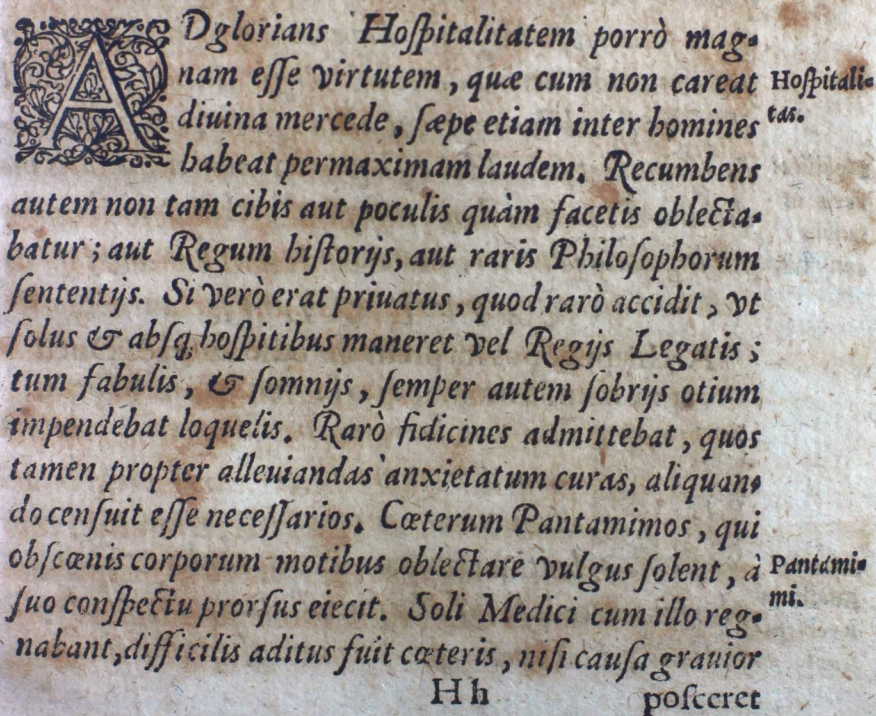 ADglorians Hoſpitalitatem porrò mag-
nam eſſe virtutem, quæ cum non careat
Hoſpitali-
tas.
diuina mercede, ſæpe etiam inter homines
habeat permaximam laudem. Recumbens
autem non tam cibis aut poculis quàm facetis oblecta-
batur; aut Regum hiſtorijs, aut raris Philoſophorum
ſententijs. Si verò erat priuatus, quod rarò accidit, vt
ſolus & abſq; hoſpitibus maneret vel Regijs Legatis;
tum fabulis, & ſomnijs, ſemper autem ſobrijs otium
impendebat loquelis. Rarò fidicines admittebat, quos
tamen propter alleuiandas anxietatum curas, aliquan-
do cenſuit eſſe neceſſarios. Cœterum Pantamimos, qui
obſcœnis corporum motibus oblectare vulgus ſolent, à
Pantami-
mi.
ſuo conſpectu prorſus eiecit. Soli Medici cum illo reg-
nabant, difficilis aditus fuit cœteris, niſi cauſa grauior
Hh
poſceret